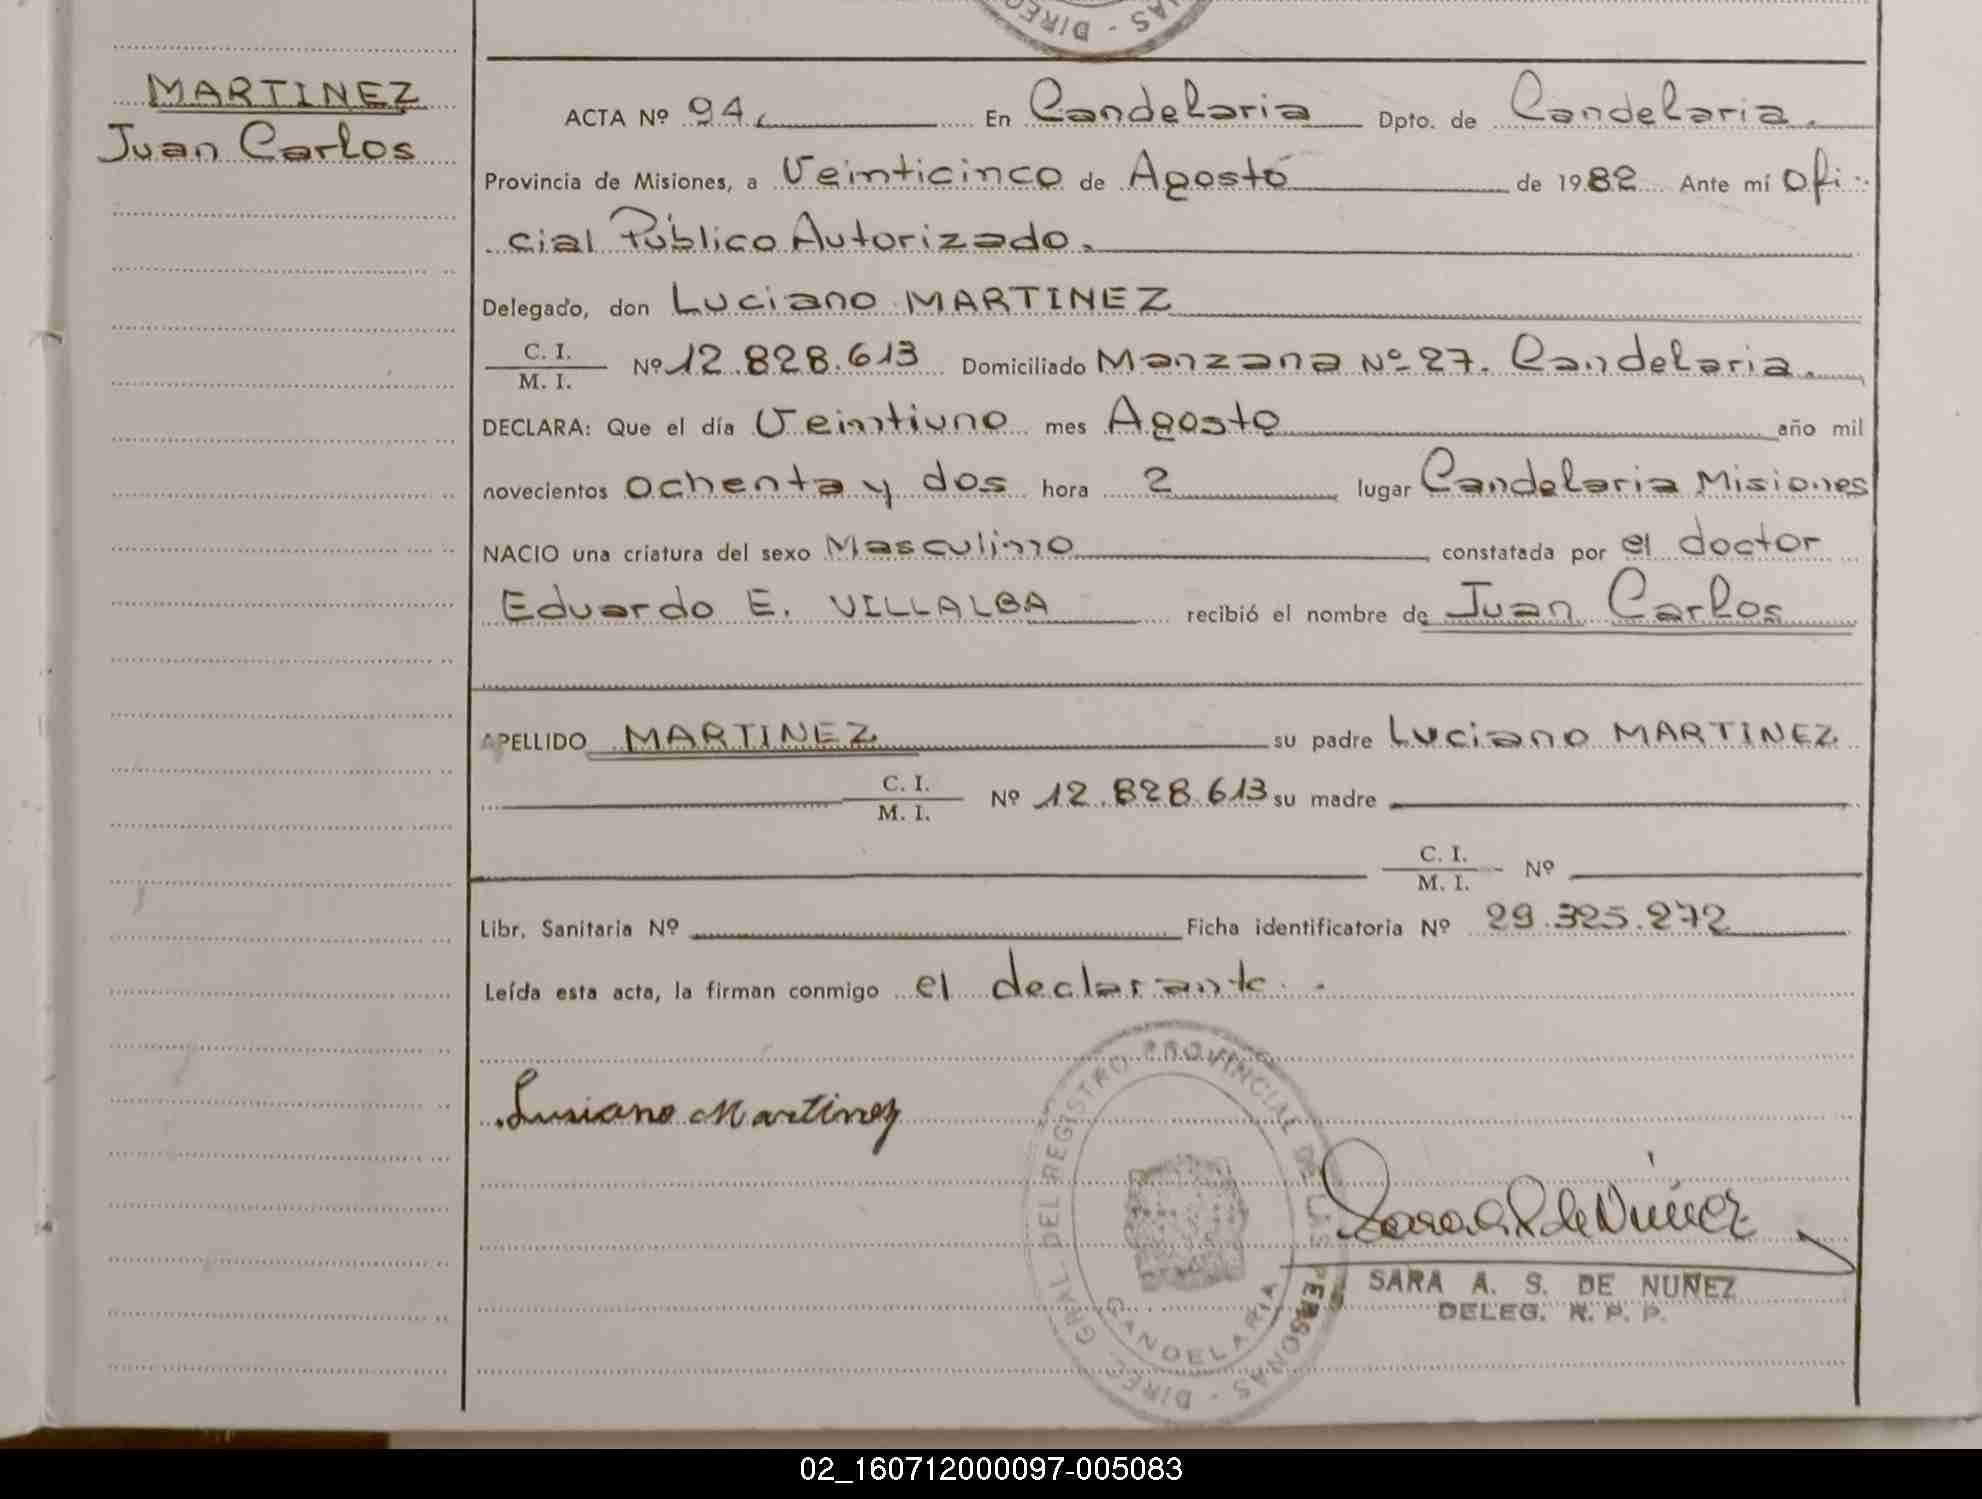 DIREC
MARTINEZ
Juan Carlos
ACTA Nº 94. En Candelaria Dpto. de Candelaria.
Provincia de Misiones, a Veinticinco de Agosto de 1982 Ante mí Ofi-
cial Público Autorizado.
Delegado, don Luciano MARTINEZ
C. I.
M. I. Nº 12.828.613 Domiciliado Manzana Nº 27. Candelaria.
DECLARA: Que el día Veintiuno mes Agosto año mil
novecientos ochenta y dos hora 2 lugar Candelaria Misiones
NACIO una criatura del sexo Masculino constatada por el doctor
Eduardo E. VILLALBA recibió el nombre de Juan Carlos
APELLIDO MARTINEZ su padre Luciano MARTINEZ
C. I.
M. I. Nº 12.828.613 su madre
C. I.
M. I. Nº
Libr. Sanitaria Nº Ficha identificatoria Nº 29.325.272
Leída esta acta, la firman conmigo el declarante.
Lusiano Martinez
DIREC. GRAL. DEL REGISTRO PROVINCIAL DE LAS PERSONAS
CANDELARIA
Sara de Nuñez
SARA A. S. DE NUÑEZ
DELEG. R. P. P.
02_160712000097-005083